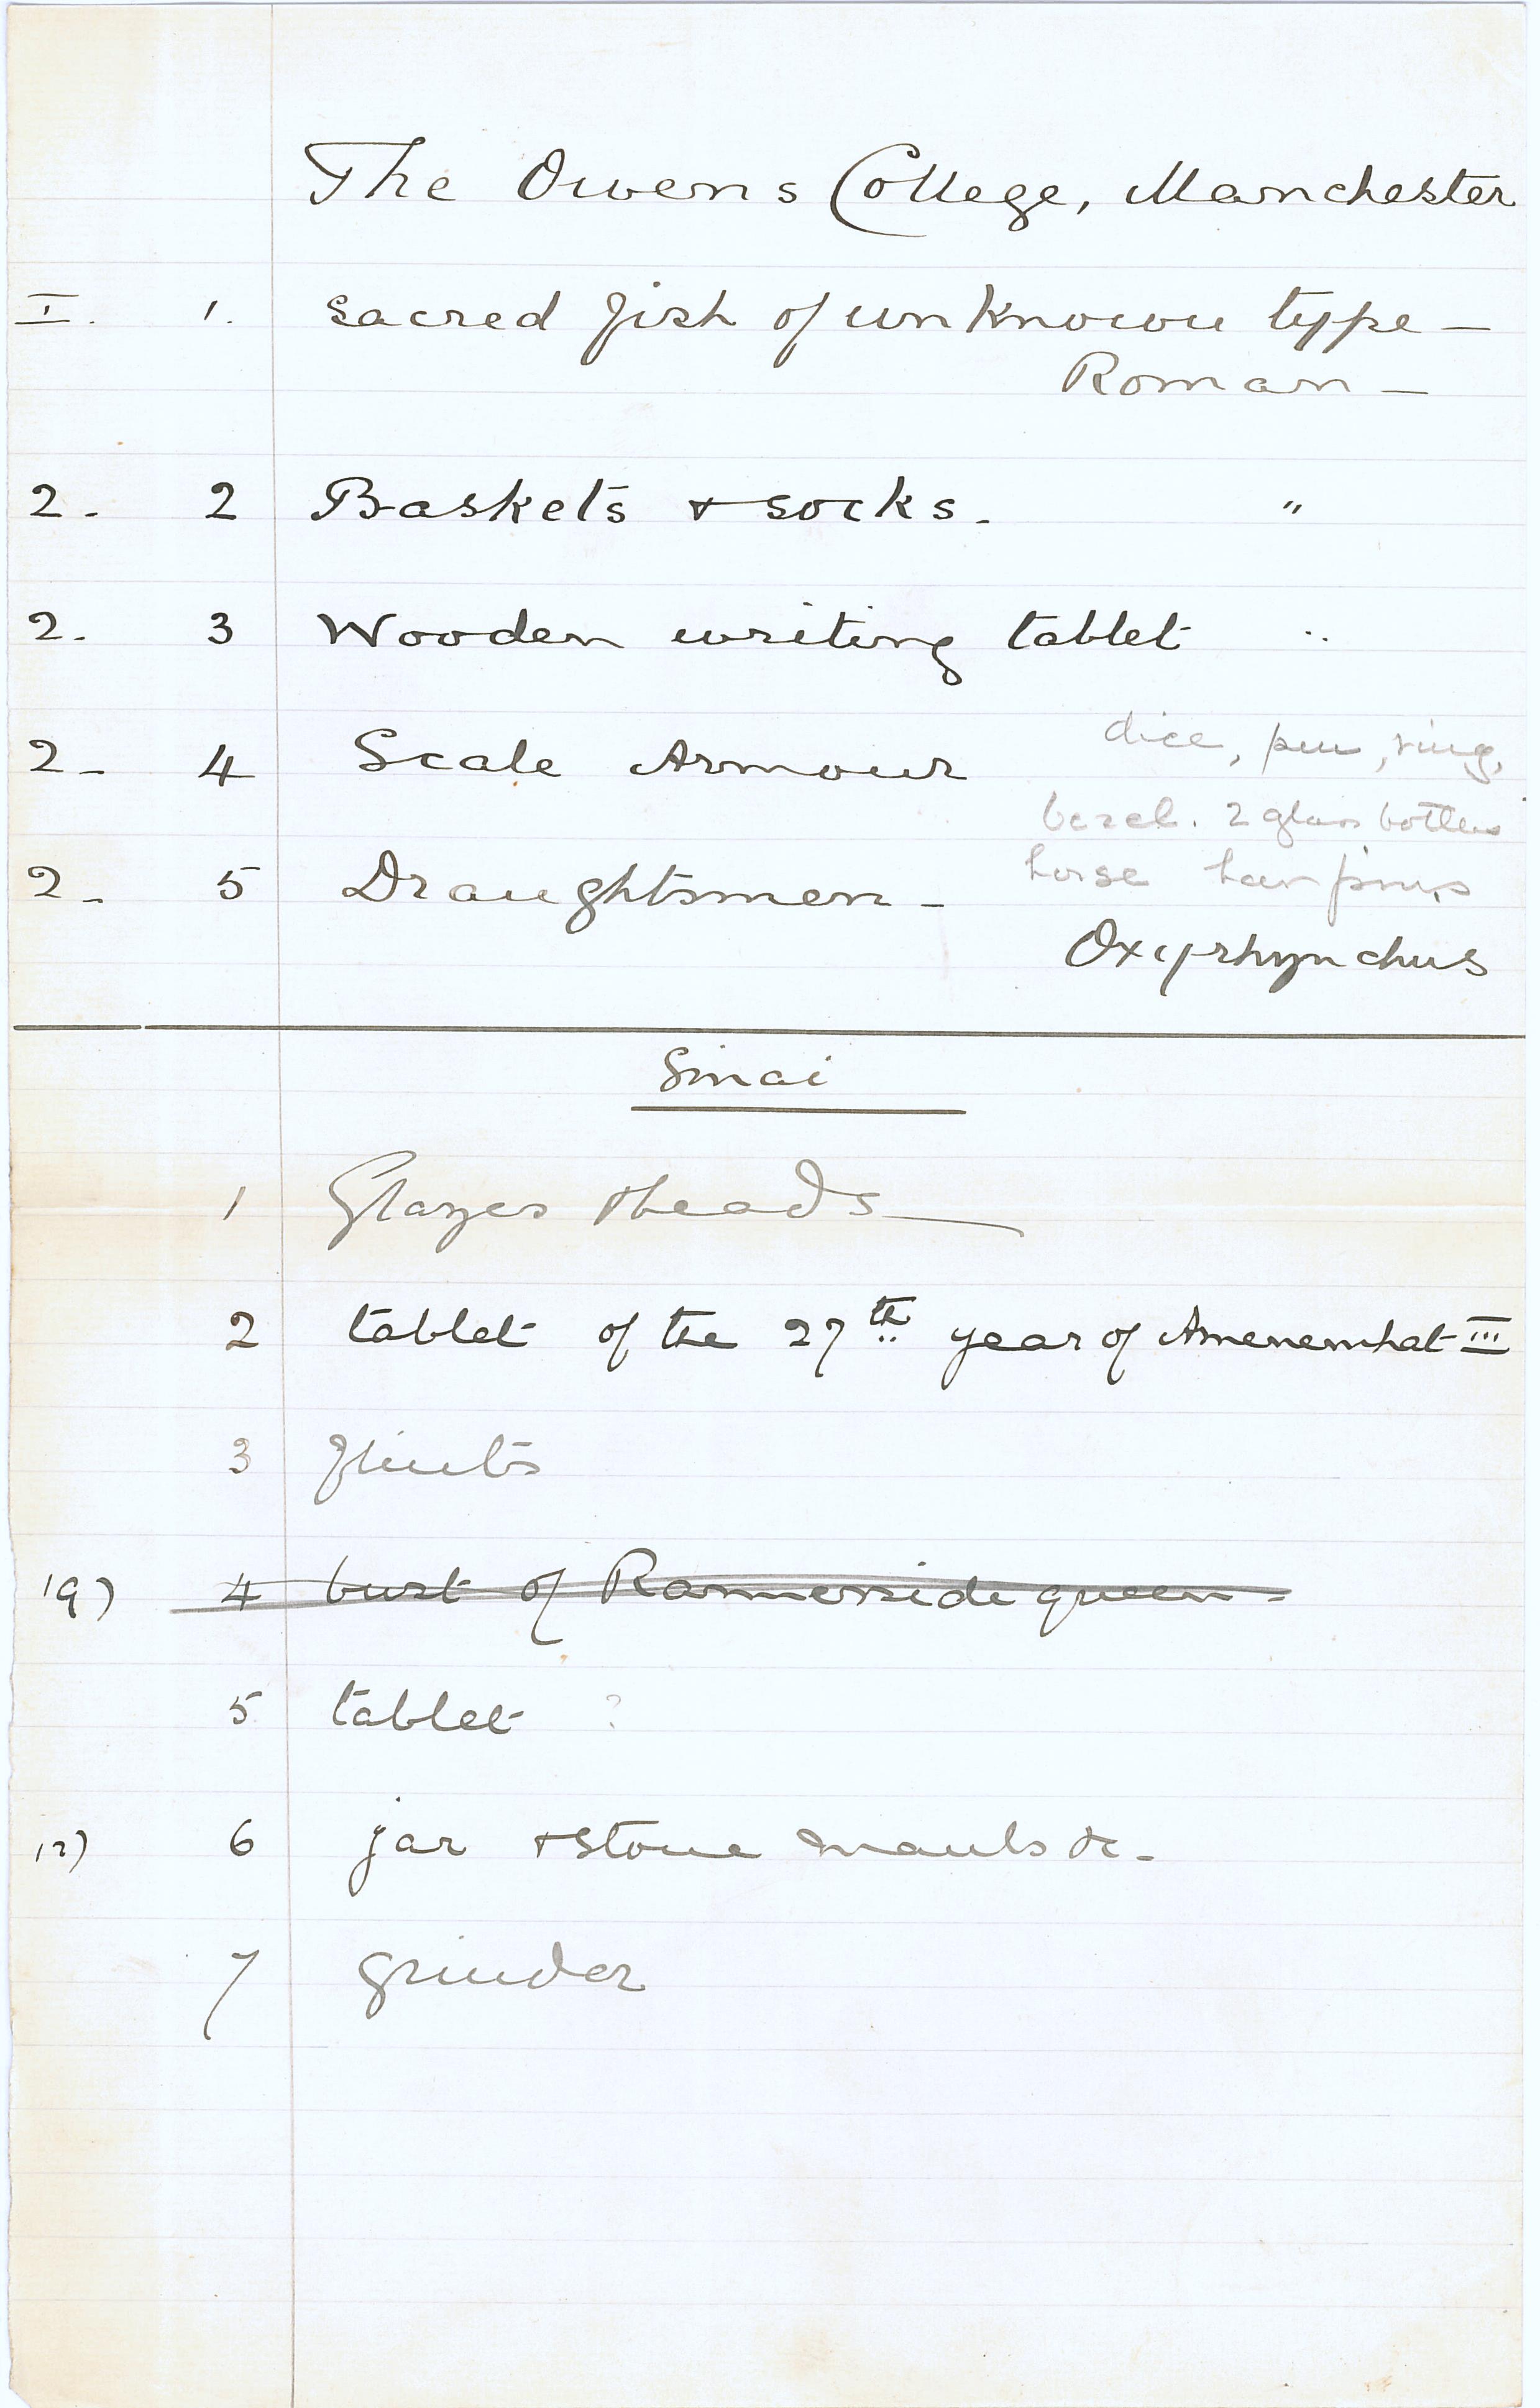 The Owens College, Manchester
I. 1. Sacred fish of unknown type –
Roman –
2. 2 Baskets & socks. "
2. 3 Wooden writing tablet "
dice, pen, ring,
2 – 4 Scale Armour
bezel. 2 glass bottles
2 – 5 Draughtsmen – horse hair pins
Oxyrhynchus
Sinai
1 Glazes & beads
2 tablet of the 27th year of Amenemhat III
3 flints
19) 4 bust of Rammesside queen –
5 tablet ?
12) 6 jar & stone mauls &c –
7 grinder